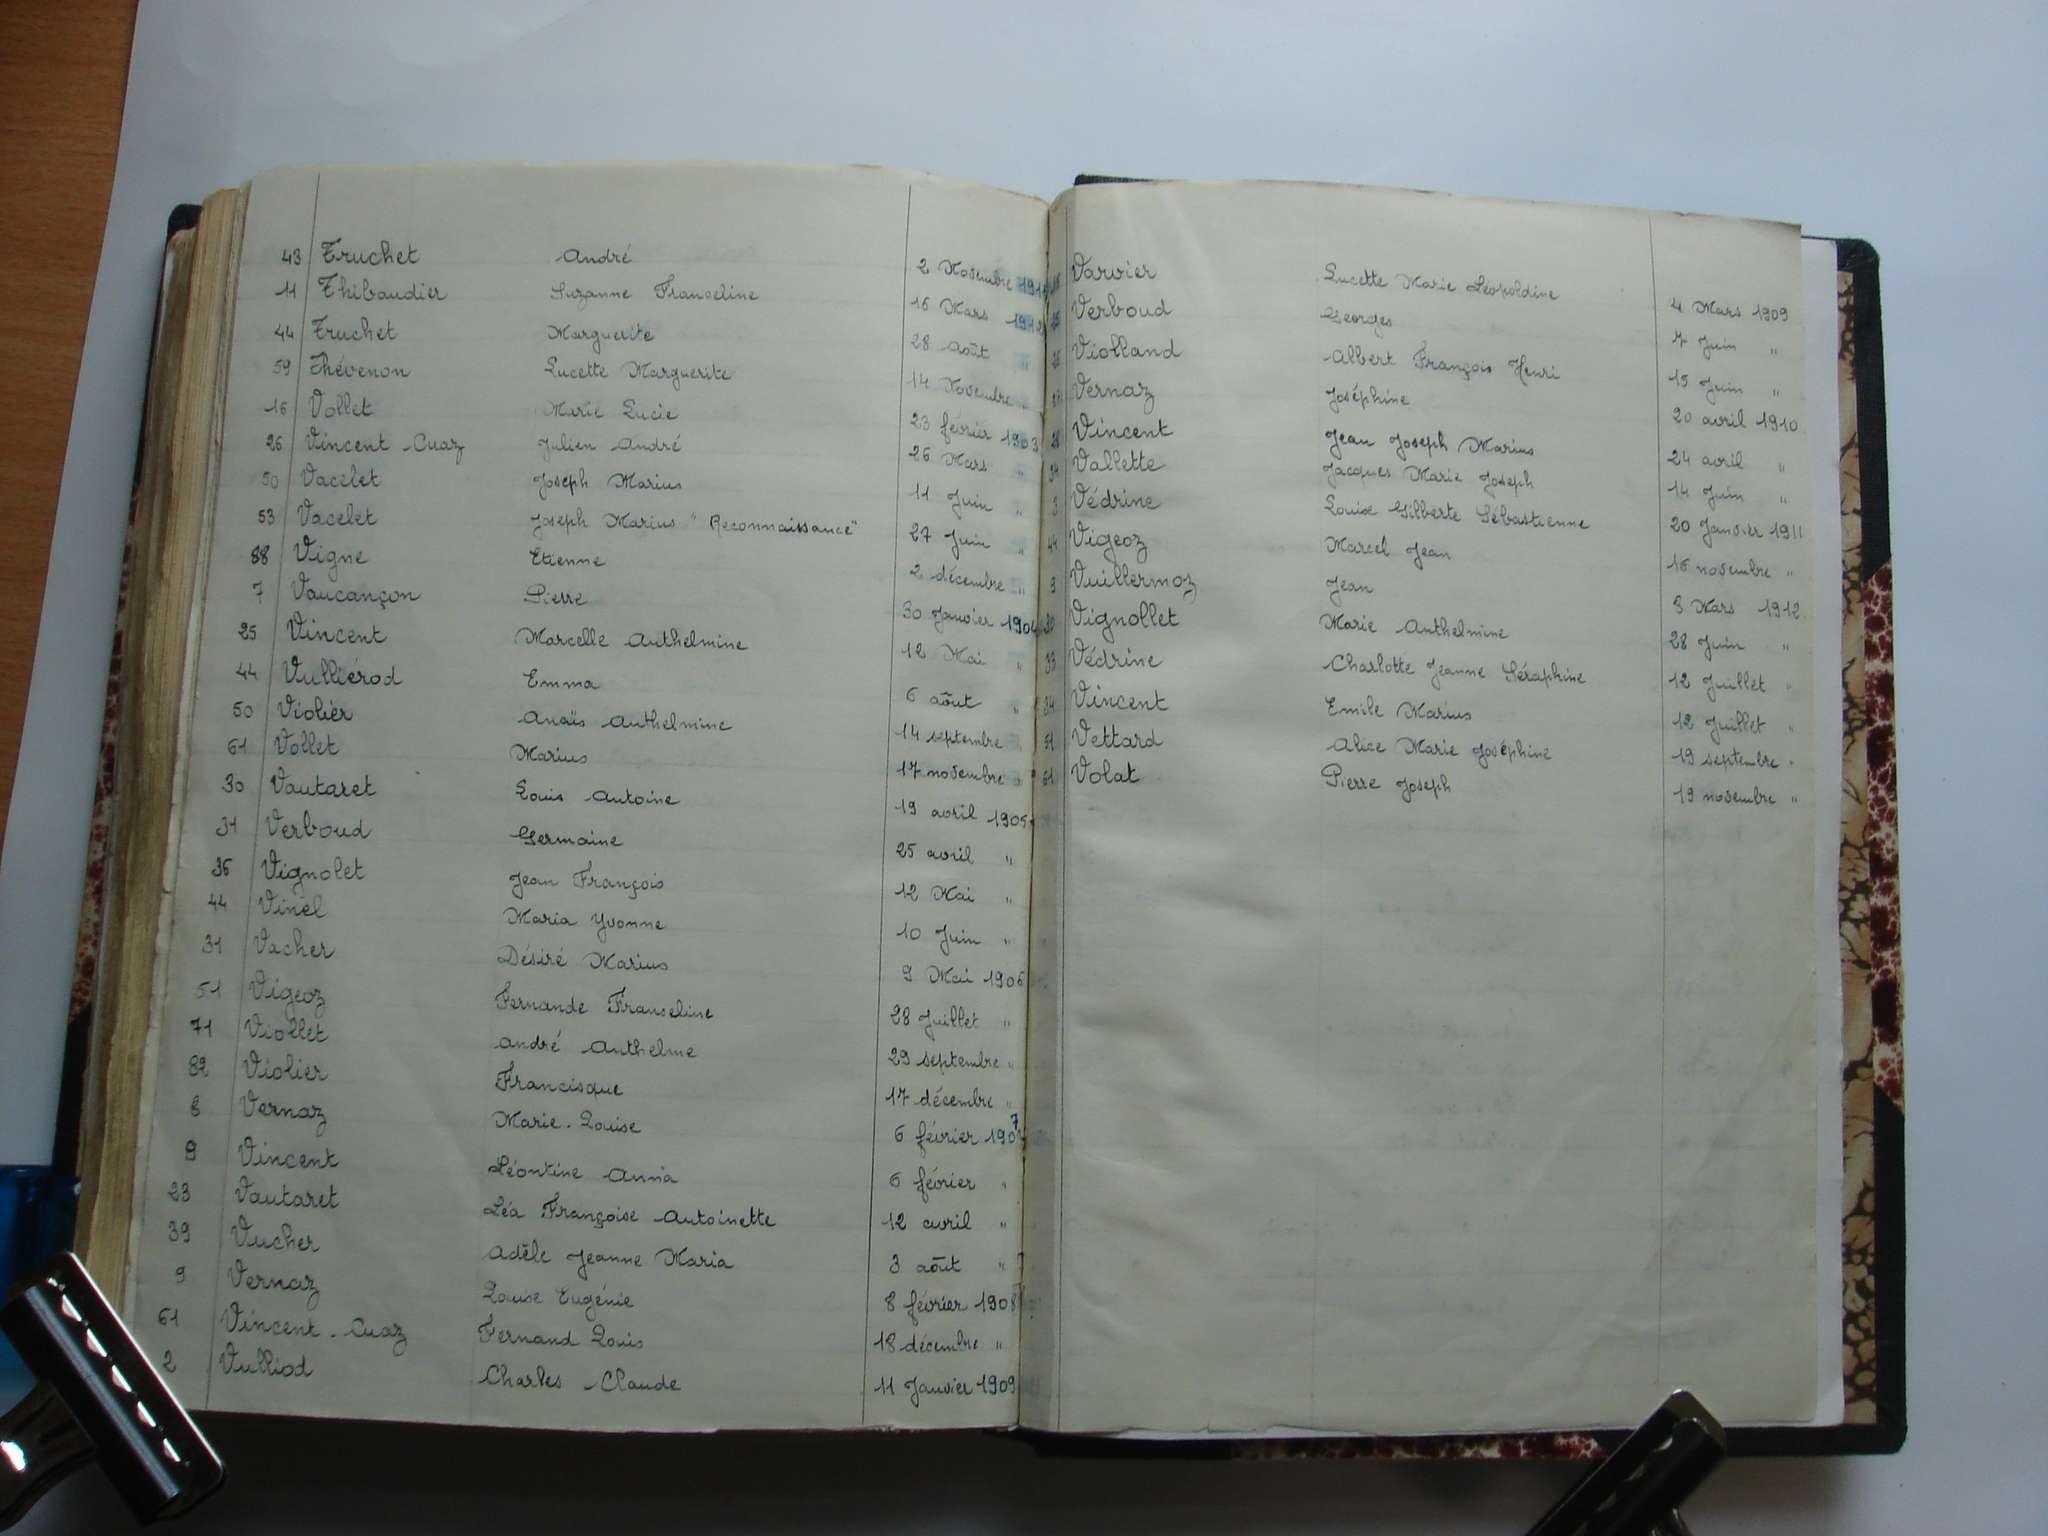 43 Truchet André 2 Novembre
11 Thibaudier Suzanne Franceline 16 Mars 1912
44 Truchet Marguerite 28 Août "
59 Thévenon Lucette Marguerite 14 Novembre "
16 Vollet Marie Lucie 23 février 1903
26 Vincent-Cuaz Julien André 26 Mars "
50 Vacelet Joseph Marius 11 Juin "
53 Vacelet Joseph Marius "Reconnaissance" 27 Juin "
88 Vigne Etienne 2 décembre "
7 Vaucançon Pierre 30 Janvier 1904
25 Vincent Marcelle Anthelmine 12 Mai "
44 Vulliérod Emma 6 août "
50 Violier Anaïs Anthelmine 14 septembre "
61 Vollet Marius 17 novembre "
30 Vautaret Louis Antoine 19 avril 1905
31 Verboud Germaine 25 avril "
36 Vignolet Jean François 12 Mai "
44 Vinel Maria Yvonne 10 Juin "
31 Vacher Désiré Marius 9 Mai 1906
51 Vigeoz Fernande Franceline 28 Juillet "
71 Viollet André Anthelme 29 septembre "
82 Violier Francisque 17 décembre "
8 Vernaz Marie-Louise 6 février 1907
9 Vincent Léontine Anna 6 février "
23 Vautaret Léa Françoise Antoinette 12 avril "
39 Vucher Adèle Jeanne Maria 3 août "
9 Vernaz Louise Eugénie 8 février 1908
61 Vincent-Cuaz Fernand Louis 18 décembre "
2 Vulliod Charles Claude 11 Janvier 1909
Varvier Lucette Marie Léopoldine 4 Mars 1909
Verboud Georges 7 Juin "
Violland Albert François Henri 15 Juin "
Vernaz Joséphine 20 avril 1910
28 Vincent Jean Joseph Marius 24 avril "
34 Vallette Jacques Marie Joseph 14 Juin "
3 Védrine Louise Gilberte Sébastienne 20 Janvier 1911
44 Vigeoz Marcel Jean 16 novembre "
9 Vuillermoz Jean 8 Mars 1912
30 Vignollet Marie Anthelmine 28 Juin "
33 Védrine Charlotte Jeanne Séraphine 12 Juillet "
34 Vincent Emile Marius 12 Juillet "
51 Vettard Alice Marie Joséphine 19 septembre "
61 Volat Pierre Joseph 19 novembre "